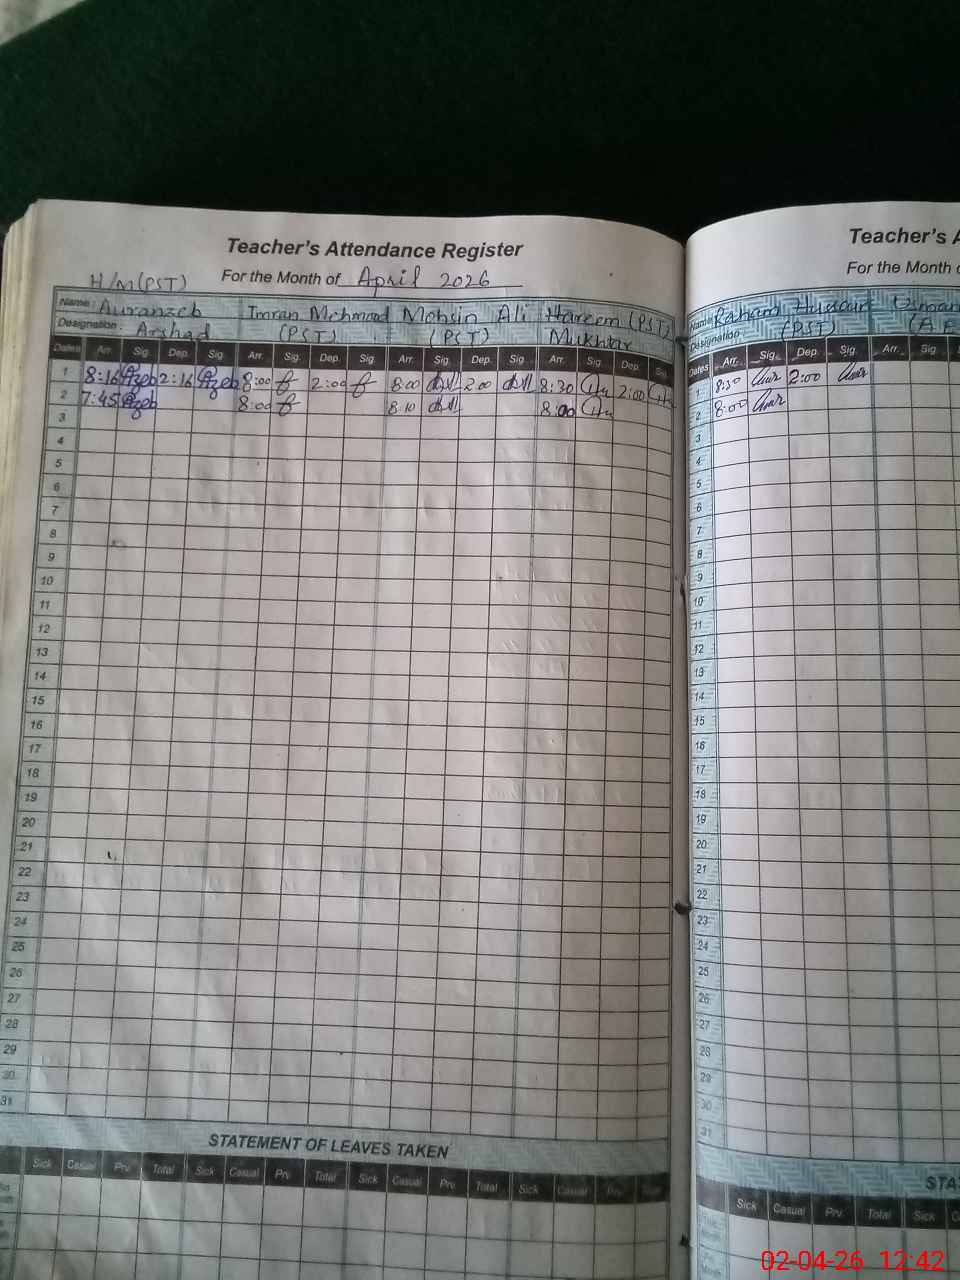 Teacher's Attendance Register
H/M (PST) For the Month of April 2026
Name: Auranzeb Imran Mehmood Mohsin Ali Hareem (PST)
Designation: Arshad (PST) (PST) Mukhtar
Dates Arr. Sig. Dep. Sig. Arr. Sig. Dep. Sig. Arr. Sig. Dep. Sig. Arr. Sig. Dep. Sig.
1 8:16 Azeb 2:16 Azeb 8:00 2:00 8:00 2:00 8:30 2:00
2 7:45 Azeb 8:00 8:10 8:00
3
4
5
6
7
8
9
10
11
12
13
14
15
16
17
18
19
20
21
22
23
24
25
26
27
28
29
30
31
STATEMENT OF LEAVES TAKEN
Sick Casual Prv. Total Sick Casual Prv. Total Sick Casual Prv. Total Sick Casual Prv. Total
Teacher's A
For the Month o
Name: Raham Hussain
Designation (PST)
Dates Arr. Sig. Dep. Sig. Arr. Sig
1 8:30 2:00
2 8:00
3
4
5
6
7
8
9
10
11
12
13
14
15
16
17
18
19
20
21
22
23
24
25
26
27
28
29
30
31
STA
Sick Casual Prv. Total Sick C
02-04-26 12:42